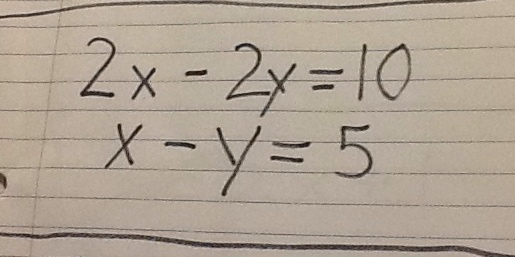 2x - 2y = 10
x - y = 5